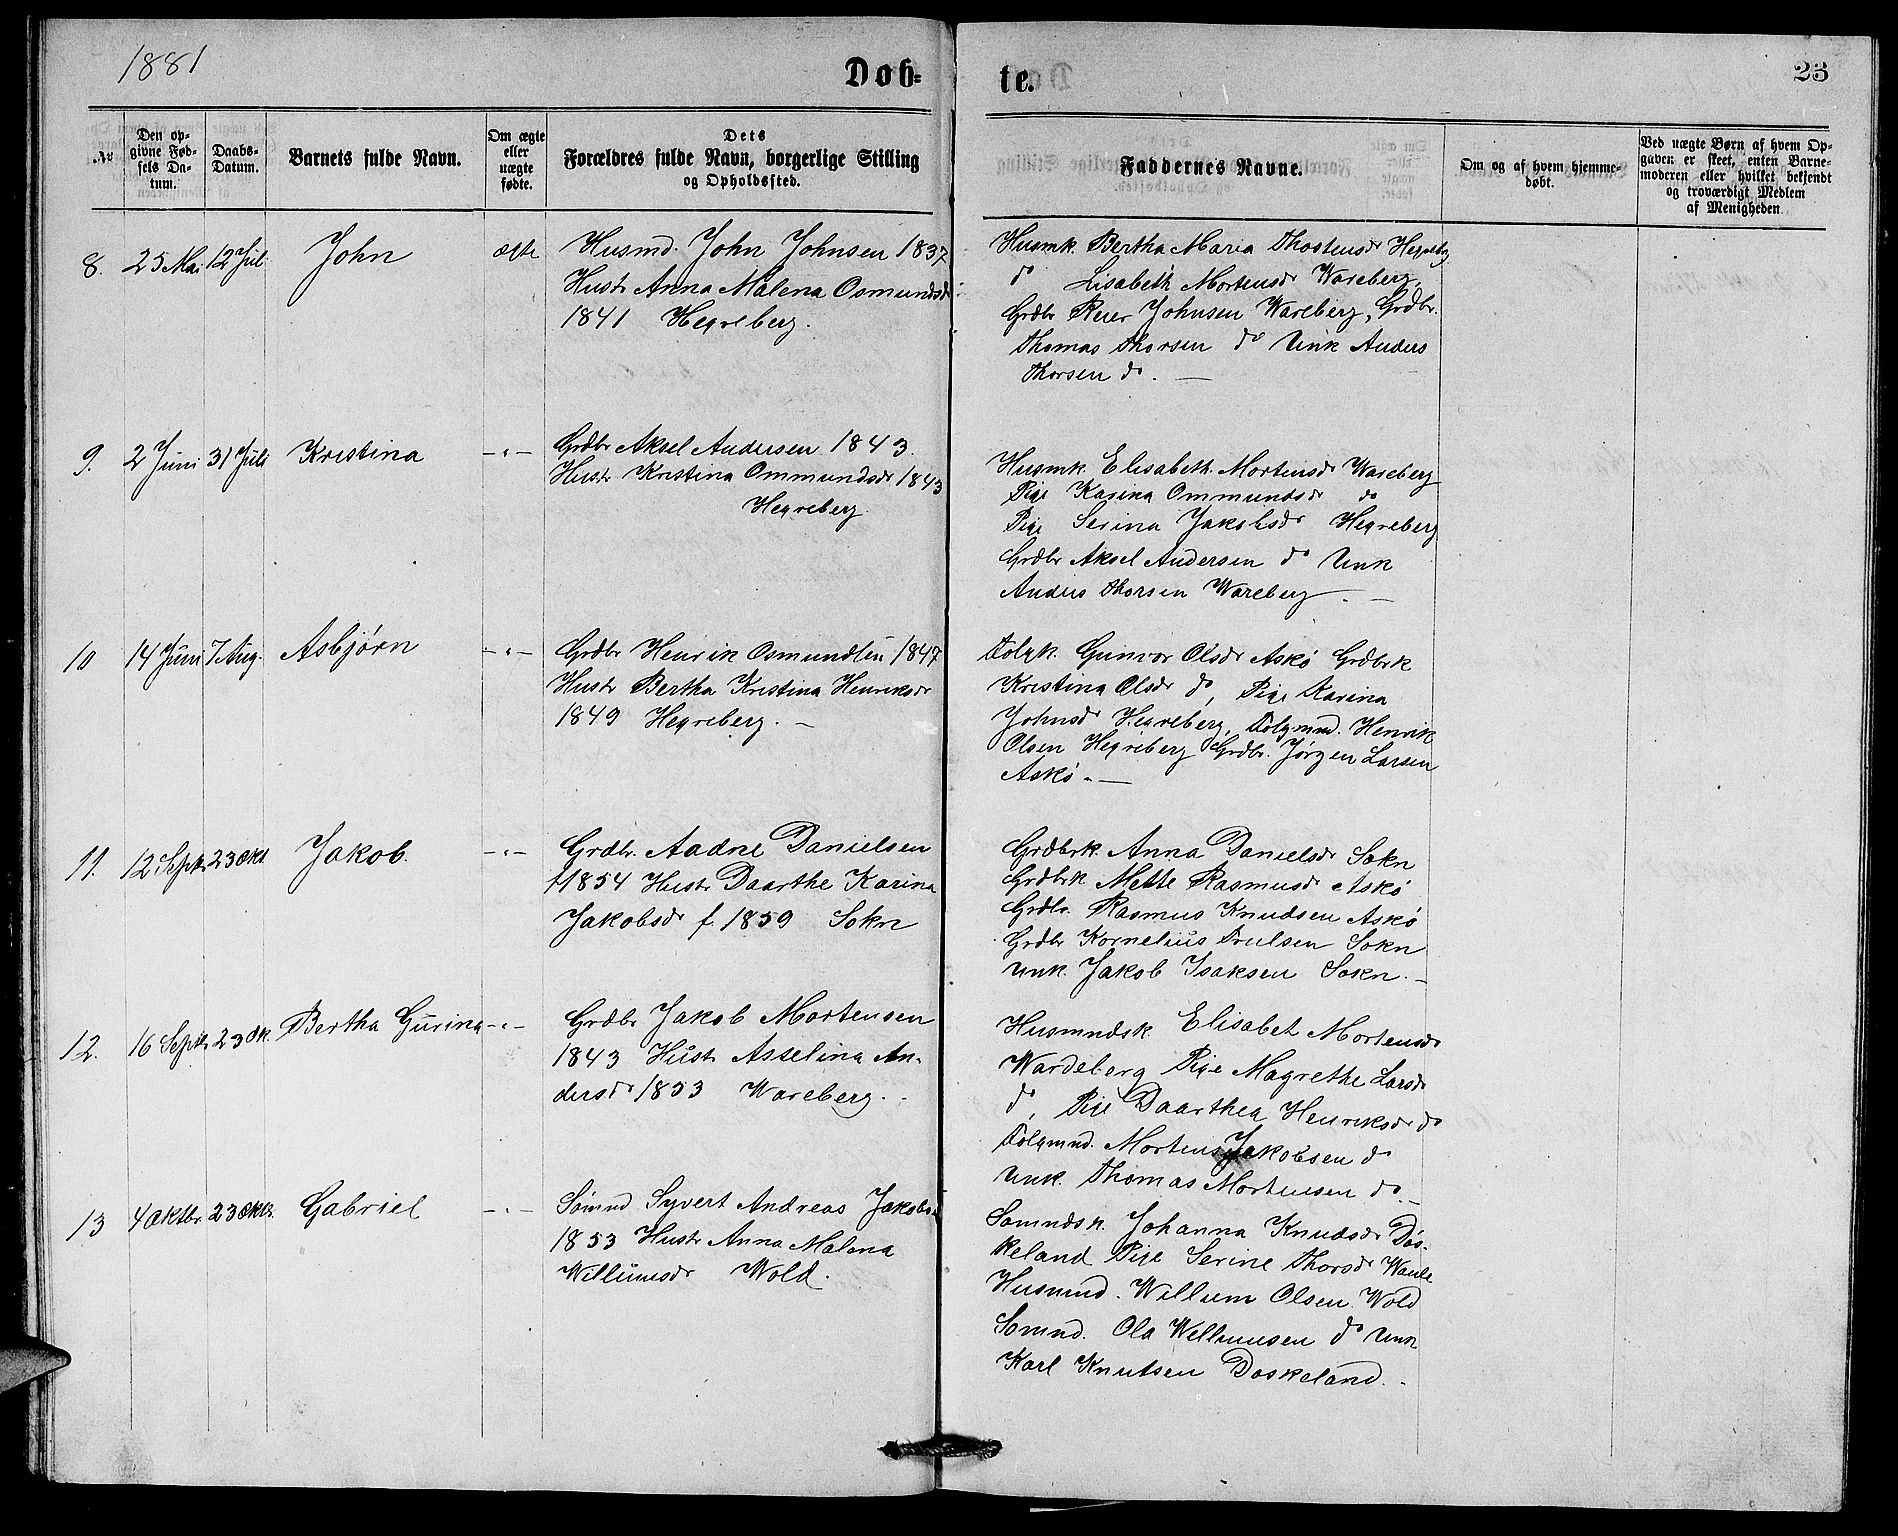 1881
Döb=
te.
23
№
Den op-
givne Fød-
sels Da-
tum.
Daabs-
Datum.
Barnets fulde Navn.
Om ægte
eller
uægte
fødte.
Dets
Forældres fulde Navn, borgerlige Stilling
og Opholdssted.
Faddernes Navne.
Om og af hvem hjemme-
døbt.
Ved uægte Børn af hvem Op-
gaven er skeet, enten Barne-
moderen eller hvilket bekjendt
og troværdigt Medlem
af Menigheden
8. 25 Mai 12 Jul. John ægte Husmd. John Johnsen 1837
Hustr Anna Malena Osmundsdr
1841 Hegreberg.
Husmk. Bertha Maria Thostensdr Hegrebg
do Lisabeth Mortensdr Wareberg,
Grdbr Reier Johnsen Wareberg, Grdbr.
Thomas Thorsen do Unk Anders
Thorsen do. —
9. 2 Juni 31 Juli Kristina —"— Grdbr Aksel Andersen 1843.
Hustr Kristina Ommundsdr 1843
Hegreberg.
Husmk. Elisabeth Mortensdr Wareberg
Pige Karina Ommundsdr do
Pige Serina Jakobsdr Hegreberg
Grdbr Aksel Andersen do Unk
Anders Thorsen Wareberg. —
10 14 Juni 7 Aug. Asbjørn —"— Grdbr Henrik Osmundsen 1847
Hustr Bertha Kristina Henriksdr
1849 Hegreberg. —
Folgk. Gunvor Olsdr Askø Grdbrk
Kristina Olsdr do, Pige Karina
Johnsdr Hegreberg, Folgmnd. Henrik
Olsen Hegreberg Grdbr. Jørgen Larsen
Askø. —
11. 12 Septr 23 Okt. Jakob. —"— Grdbr. Aadne Danielsen
f 1854 Hustr Daarthe Karina
Jakobsdr f. 1859 Sokn
Grdbrk. Anna Danielsdr Sokn
Grdbrk. Mette Rasmusdr Askø
Grdbr. Rasmus Knudsen Askø
Grdbr Kornelius Trulsen Sokn
Unk. Jakob Isaksen Sokn. —
12. 16 Septr 23 Ok. Bertha Gurina —"— Grdbr Jakob Mortensen
1843 Hustr Asselina An-
dersdr 1853 Wareberg.
Husmndsk. Elisabet Mortensdr
Wardeberg Pige Magrethe Larsdr
do, Pige Daarthea Henriksdr do
Folgmnd. Morten Jakobsen do
Unk. Thomas Mortensen do. —
13 4 Oktbr. 23 Oktr. Gabriel —"— Sømnd Syvert Andreas Jakobs.
1853 Hustr Anna Malena
Willumsdr Wold.
Sømndsk. Johanna Knudsdr Døs-
keland Pige Serine Thorsdr Waule
Husmnd. Willum Olsen Wold
Sømnd. Ola Willumsen do Unk
Karl Knutsen Døskeland.